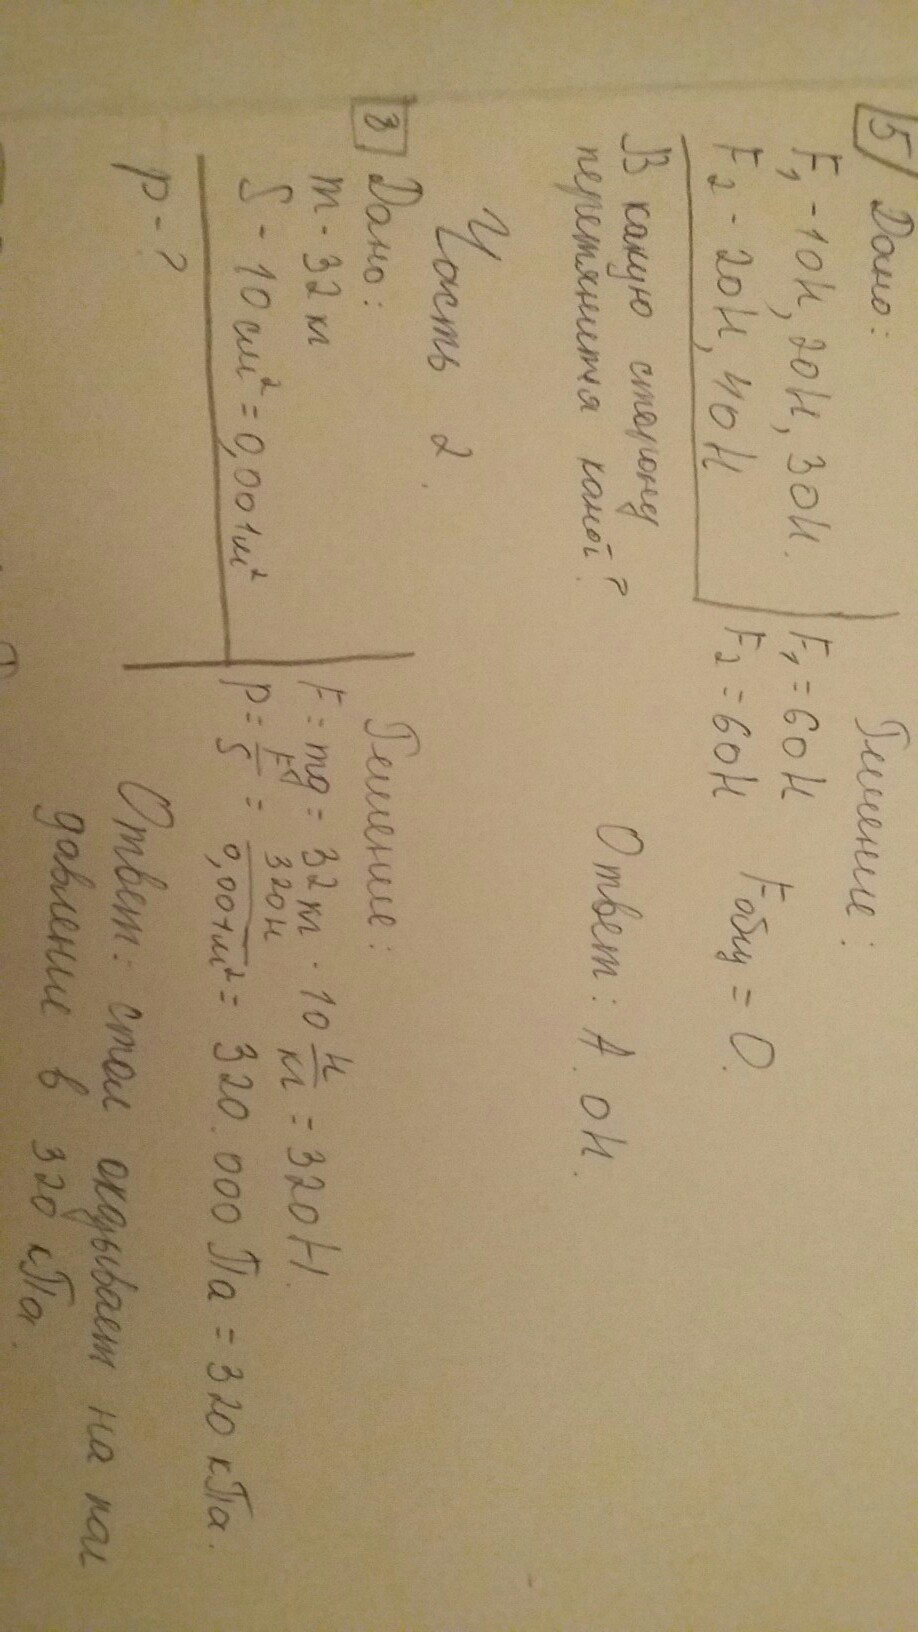 5 Дано:
F₁ - 10Н, 20Н, 30Н.
F₂ - 20Н, 40Н
В какую сторону
перетянится канат?
Решение:
F₁ = 60Н
F₂ = 60Н Fобщ = 0.
Ответ: А. 0Н.
Часть 2.
Дано:
m - 32 кг
S - 10 см² = 0,001м²
p - ?
Решение:
F = mg = 32 кг · 10 Н/кг = 320Н.
p = F/S = 320Н/0,001м² = 320.000 Па = 320 кПа.
Ответ: стол оказывает на пол
давление в 320 кПа.